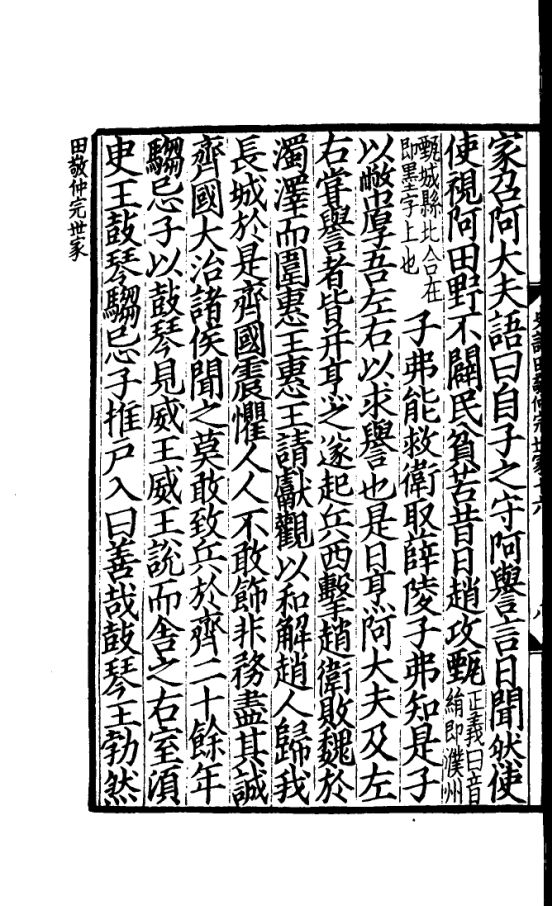 家召阿大夫語曰自子之守阿譽言日聞然使
使視阿田野不闢民貧苦昔日趙攻甄正義曰音絹即濮州
甄城縣北合在即墨字上也子弗能救衛取薛陵子弗知是子
以幣厚吾左右以求譽也是日烹阿大夫及左
右嘗譽者皆并烹之遂起兵西擊趙衛敗魏於
濁澤而圍惠王惠王請獻觀以和解趙人歸我
長城於是齊國震懼人人不敢飾非務盡其誠
齊國大治諸侯聞之莫敢致兵於齊二十餘年
騶忌子以鼓琴見威王威王說而舍之右室須
臾王鼓琴騶忌子推戶入曰善哉鼓琴王勃然
田敬仲完世家